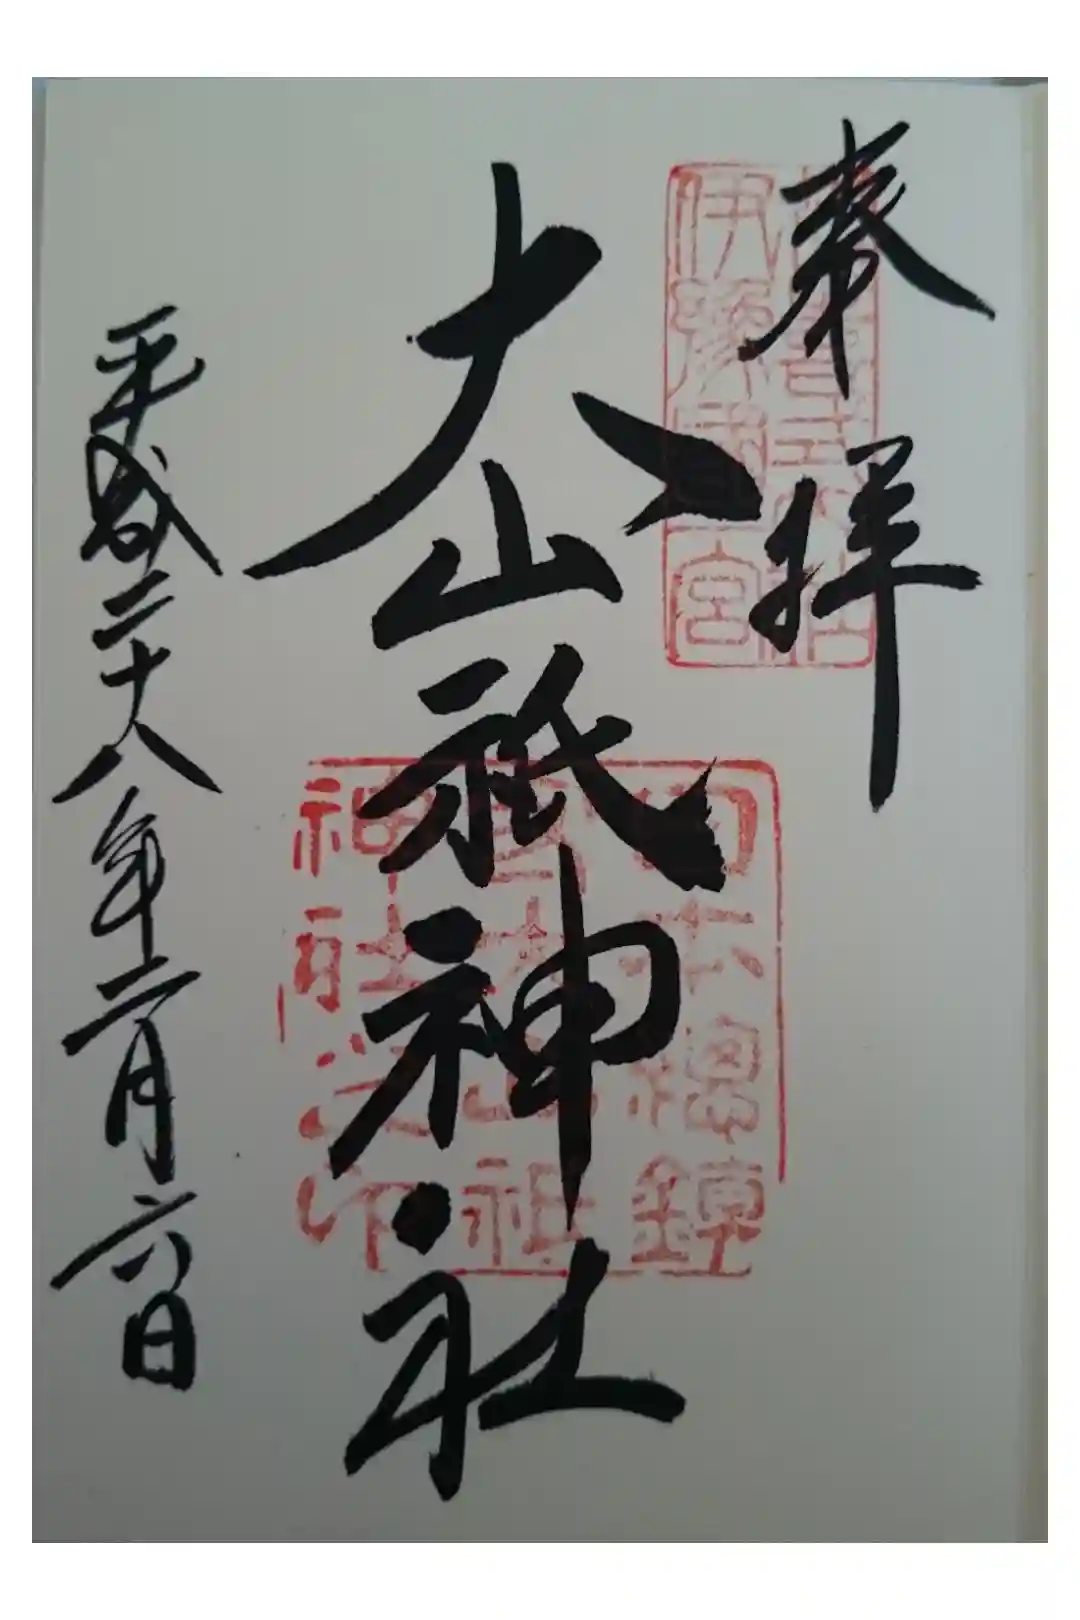 奉拝
伊豫國一宮
大山祇神社
日本總鎮
守大山祇
神社之印
平成二十八年二月六日